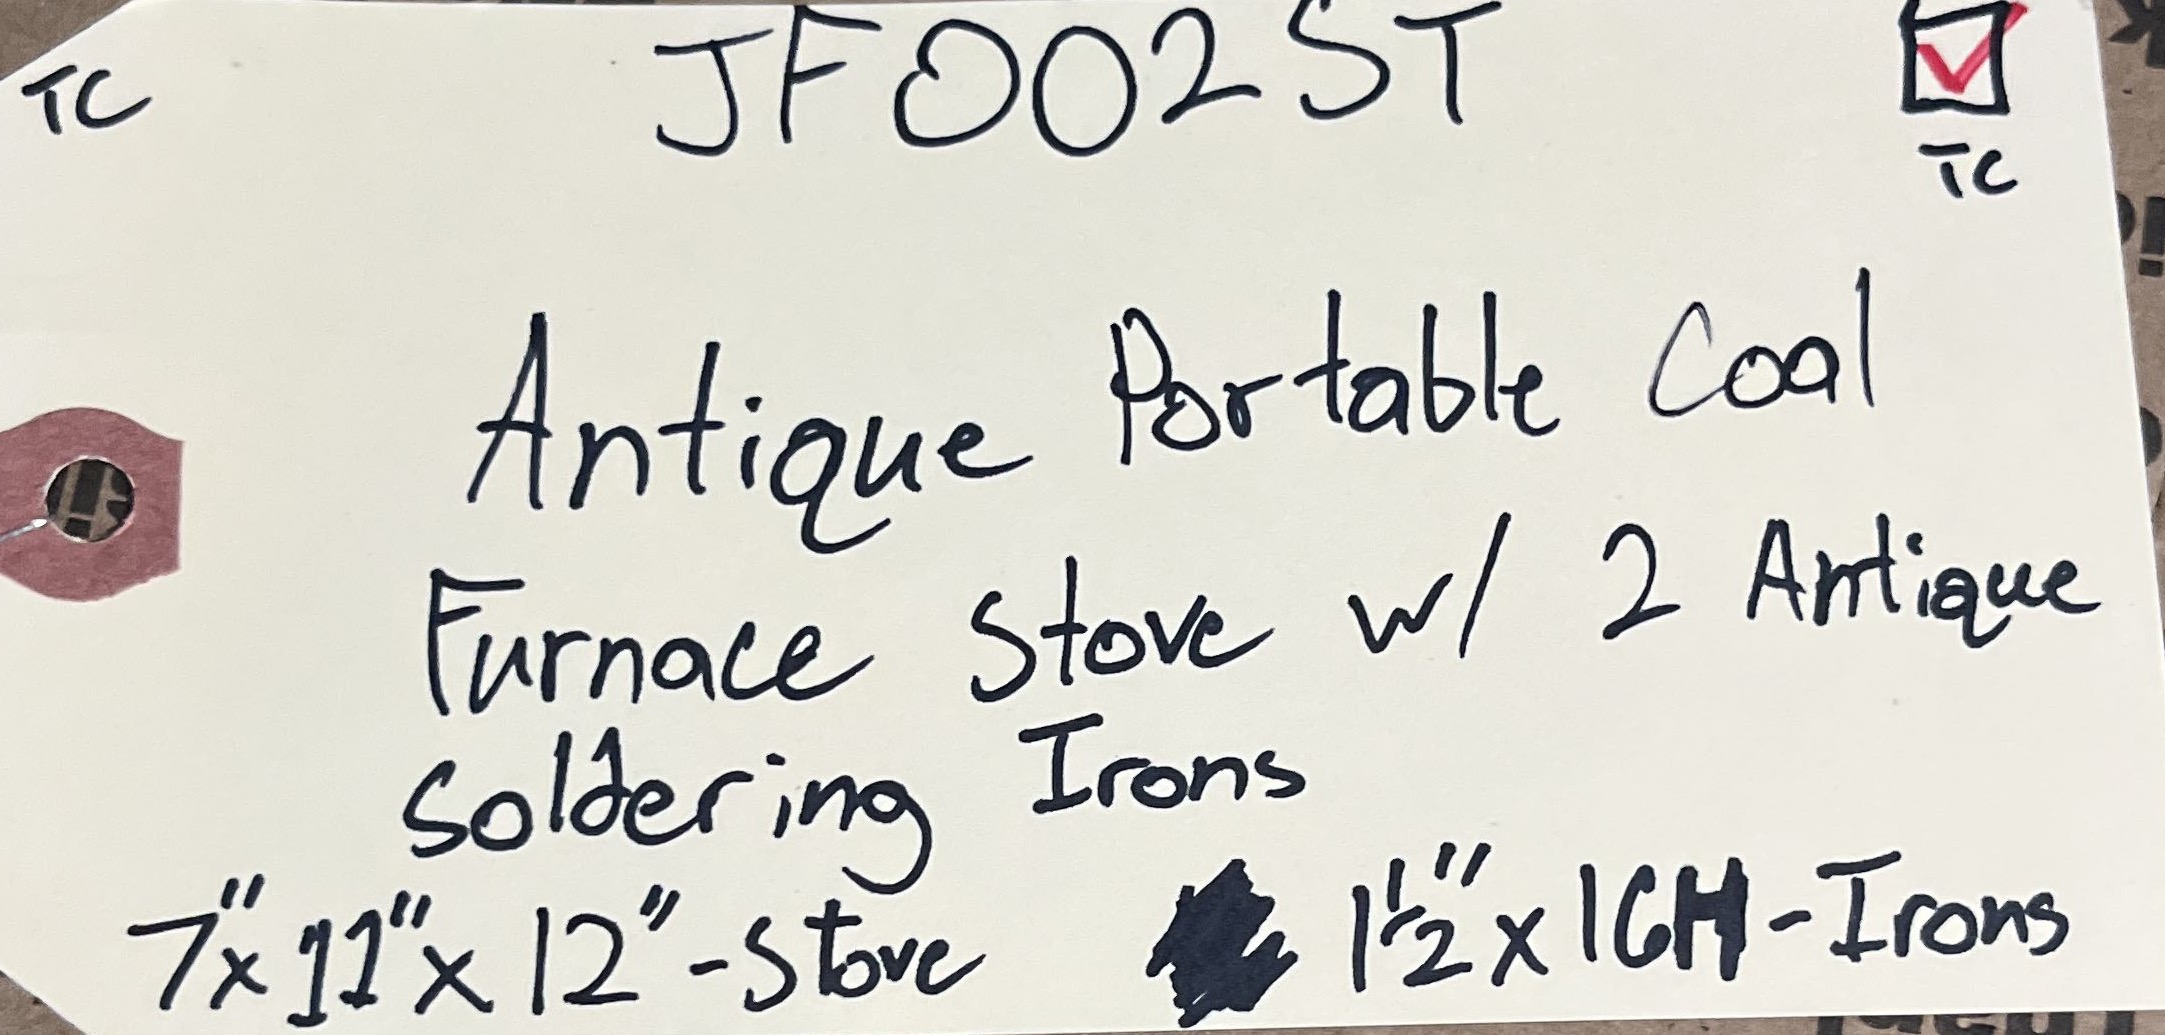 TC JF002ST
TC
Antique Portable Coal
Furnace Stove w/ 2 Antique
Soldering Irons
7"x 11"x 12"-Stove 1½"x 16H-Irons